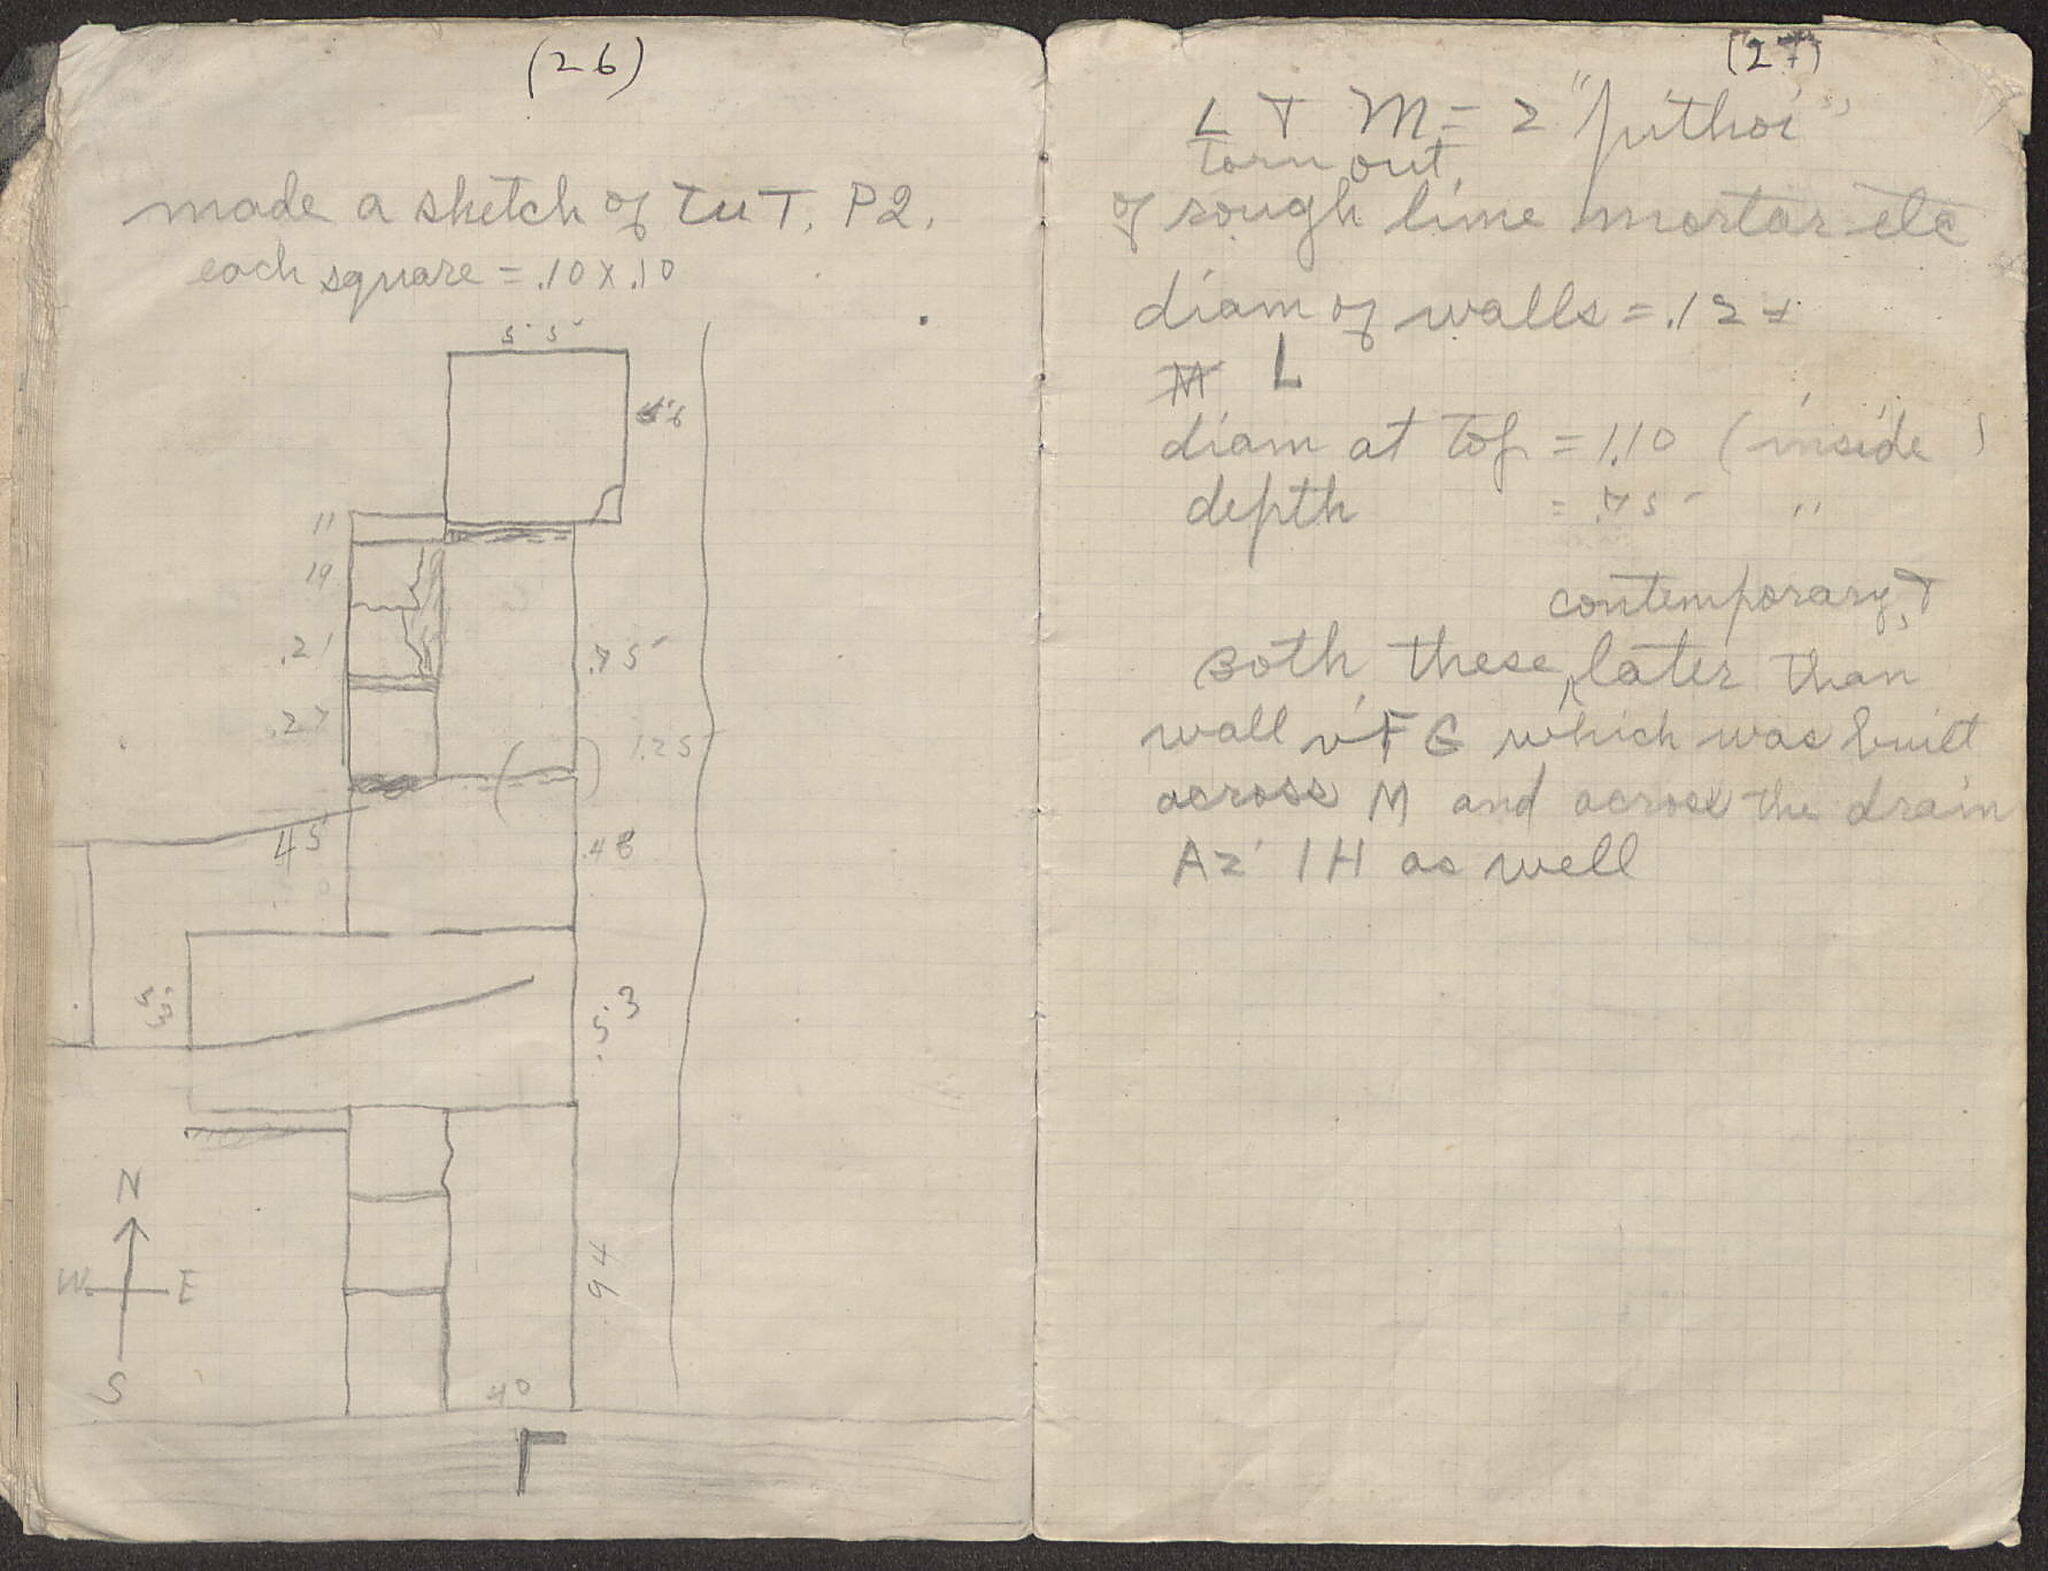 (26)
made a sketch of TuT, P2.
each square = .10 x .10
55
11
19
.21
.75
.27
1.25
45
.48
53
.53
N
W E
S
94
40
Γ
(27)
L + M = 2 "pithoi"
torn out
of rough lime mortar etc
diam of walls = .12 +
M L
diam at top = 1.10 (inside)
depth = .75 "
contemporary, +
Both these ʌ later than
wall v F G which was built
across M and across the drain
Az' IH as well